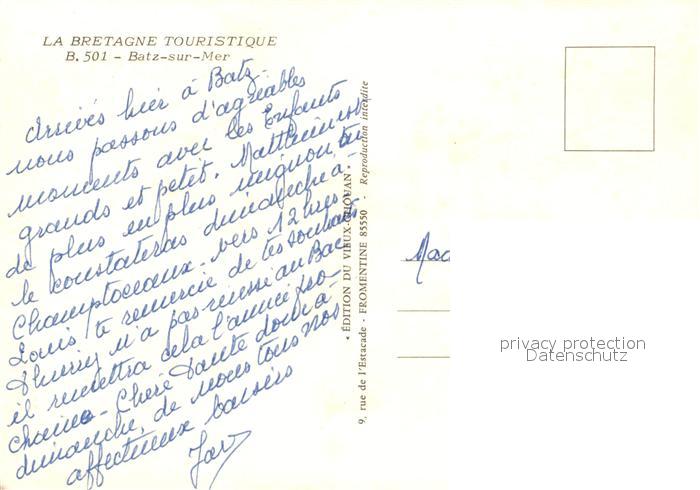 LA BRETAGNE TOURISTIQUE
B. 501 - Batz-sur-Mer
Arrivés hier à Batz
nous passons d'agréables
moments avec les Enfants
grands et petit. Matthieu est
de plus en plus mignon tu
le constateras dimanche à
Champtoceaux - vers 12 hres
Louis te remercie de tes souhaits
Thierry n'a pas réussi au Bac
il remettra cela l'année pro-
chaine - Chère Tante donc à
dimanche, de nous tous nos
affectueux baisers
« ÉDITION DU VIEUX-CHOUAN »
9, rue de l'Estacade - FROMENTINE 85550 - Reproduction interdite
Mad
privacy protection
Datenschutz